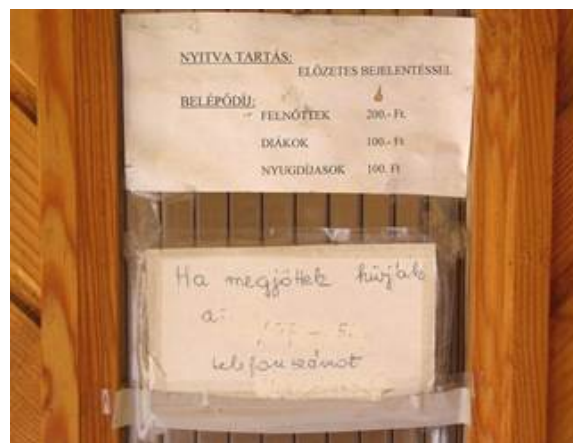 NYITVA TARTÁS:
ELŐZETES BEJELENTÉSSEL
BELÉPŐDÍJ:
FELNŐTTEK 200.- Ft.
DIÁKOK 100.- Ft
NYUGDÍJASOK 100. Ft
Ha megjöttek hívják
a:
telefonszámot